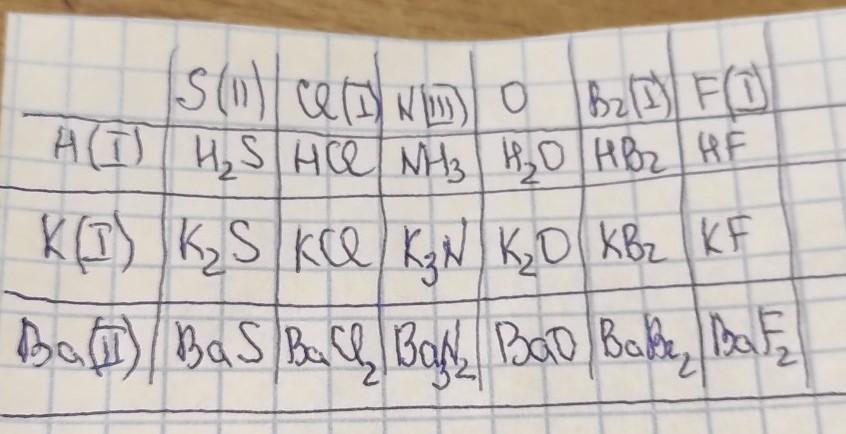 S(II) Cl(I) N(III) O Br(I) F(I)
H(I) H₂S HCl NH₃ H₂O HBr HF
K(I) K₂S KCl K₃N K₂O KBr KF
Ba(II) BaS BaCl₂ Ba₃N₂ BaO BaBr₂ BaF₂